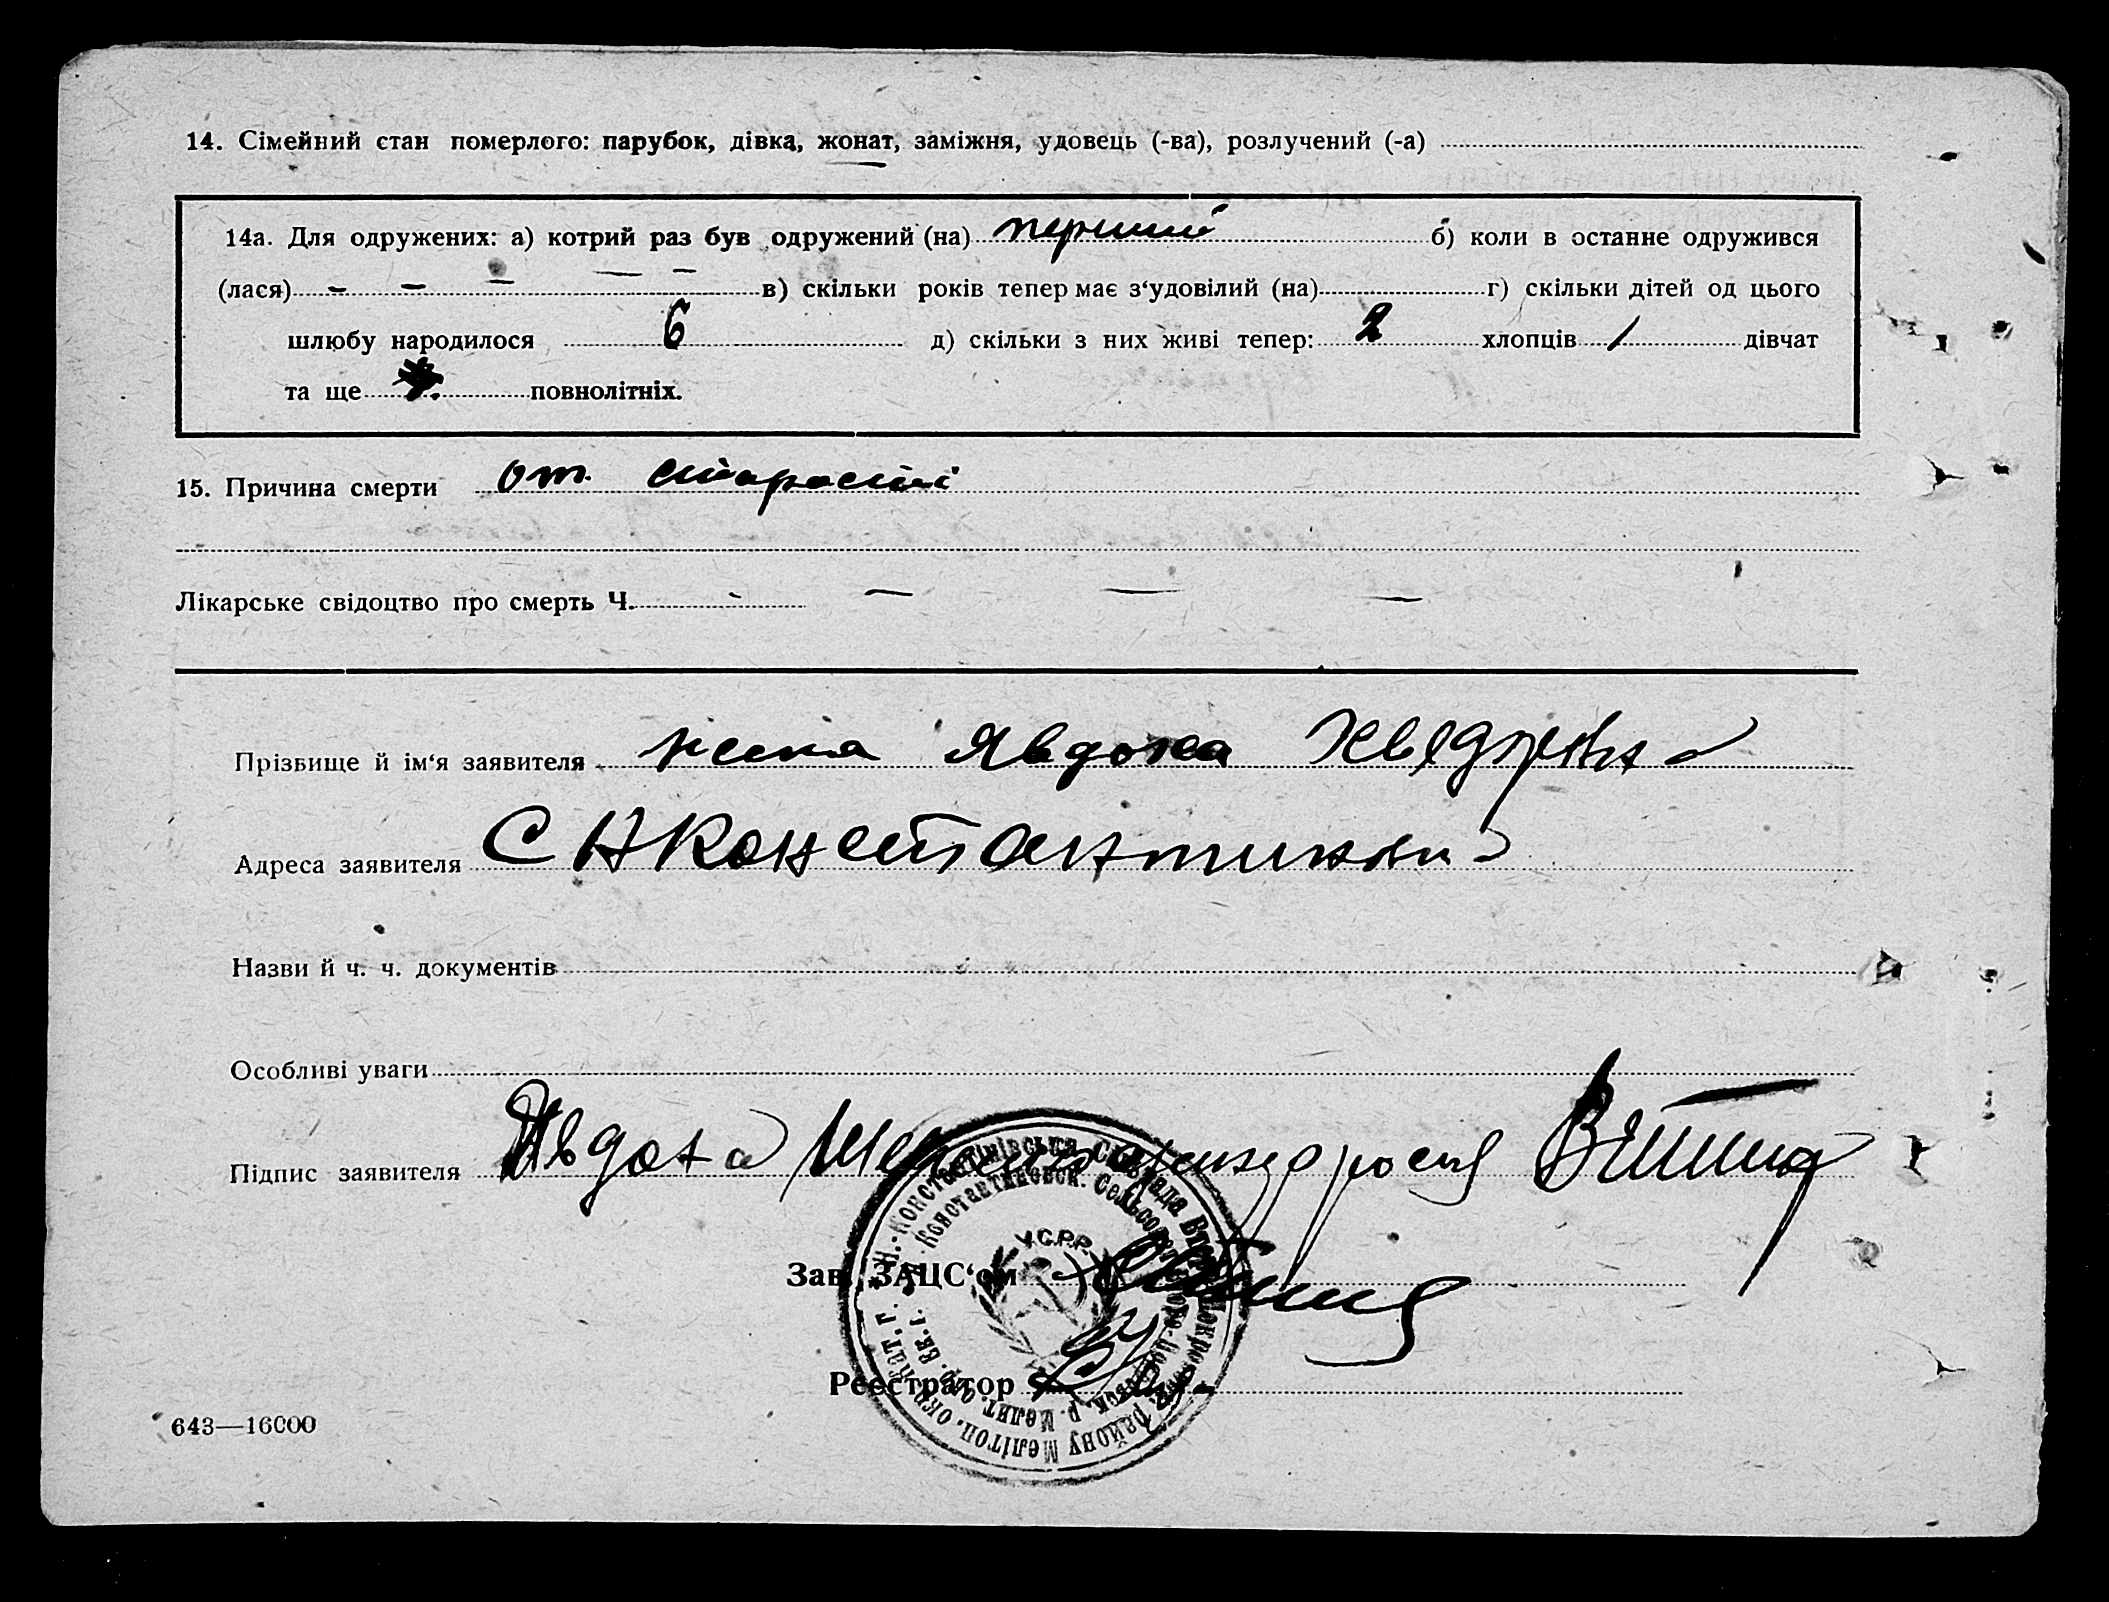 14. Сімейний стан померлого: парубок, дівка, жонат, заміжня, удовець (-ва), розлучений (-а)
14а. Для одружених: а) котрий раз був одружений (на) перший б) коли в останнє одружився
(лася) – – – – – в) скільки років тепер має з‘удовілий (на) г) скільки дітей од цього
шлюбу народилося 6 д) скільки з них живі тепер: 2 хлопців 1 дівчат
та ще повнолітніх.
15. Причина смерти от старости
Лікарське свідоцтво про смерть Ч. - — — —
Прізвище й ім‘я заявителя Явдоха
Адреса заявителя С Н Константиновка
Назви й ч. ч. документів
Особливі уваги
Підпис заявителя Явдоха
Зав. ЗАЦС‘ом
У.С.Р.Р.
Реєстратор
643—16000